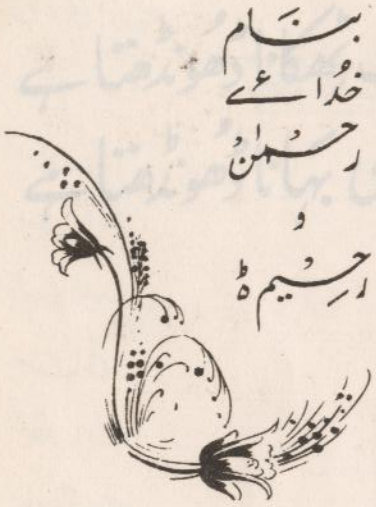 بنام
خُدائے
رحمٰنُ
و
رحیم ہ